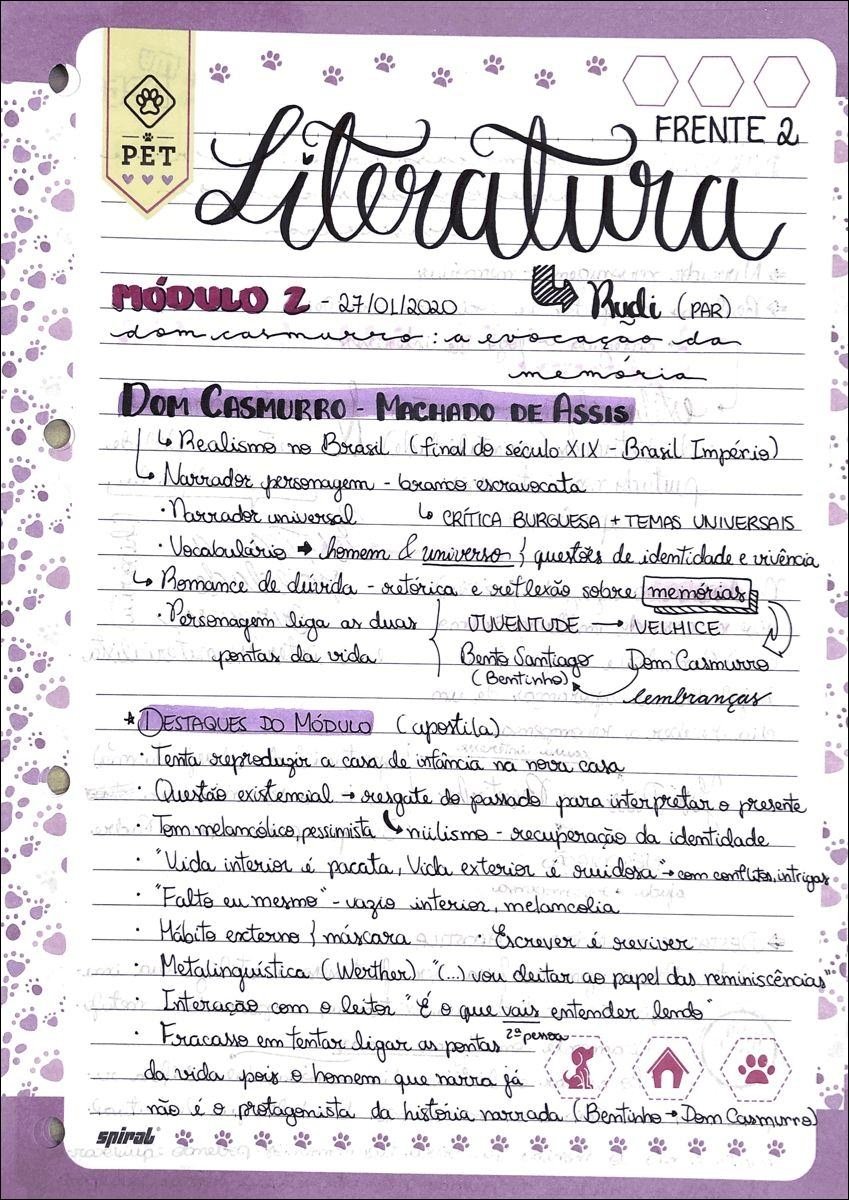 PET
FRENTE 2
Literatura
MÓDULO 2 - 27/01/2020
Rudi (PAR)
dom casmurro: a evocação da
memória
DOM CASMURRO - MACHADO DE ASSIS
↳ Realismo no Brasil (final do século XIX - Brasil Império)
↳ Narrador personagem - branco escravocata
· Narrador universal ↳ CRÍTICA BURGUESA + TEMAS UNIVERSAIS
· Vocabulário → homem & universo } questões de identidade e vivência
↳ Romance de dúvida - retórica e reflexão sobre memórias
· Personagem liga as duas { JUVENTUDE → VELHICE
pontas da vida Bento Santiago Dom Casmurro
(Bentinho)
lembranças
* DESTAQUES DO MÓDULO (apostila)
· Tenta reproduzir a casa de infância na nova casa
· Questão existencial → resgate do passado para interpretar o presente
· Tom melancólico, pessimista ↳ niilismo - recuperação da identidade
· "Vida interior é pacata, Vida exterior é ruidosa" → com conflitos, intrigas
· "Falto eu mesmo" - vazio interior, melancolia
· Hábito externo } máscara · Escrever é reviver
· Metalinguística (Werther) "(...) vou deitar ao papel das reminiscências"
· Interação com o leitor "É o que vais entender lendo"
2ª pessoa
· Fracasso em tentar ligar as pontas
da vida pois o homem que narra já
não é o protagonista da história narrada (Bentinho → Dom Casmurro)
spiral